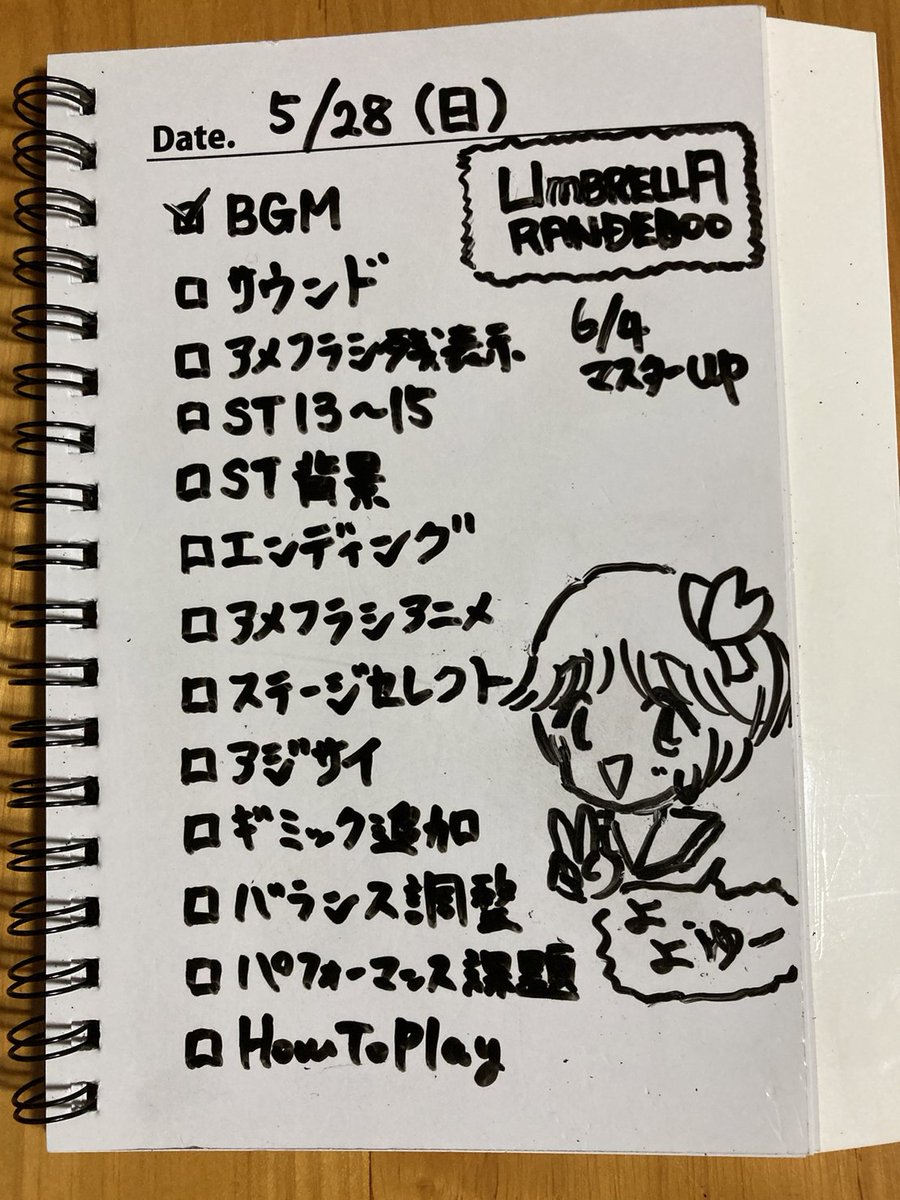 Date. 5/28 (日)
UmBRELLA
RANDEBOO
6/4
マスターUP
☑ BGM
□ サウンド
□ アメフラシ残表示
□ ST 13～15
□ ST 背景
□ エンディング
□ アメフラシアニメ
□ ステージセレクト
□ アジサイ
□ ギミック追加
□ バランス調整
□ パフォーマンス課題
□ HowToPlay
よ
よゆー